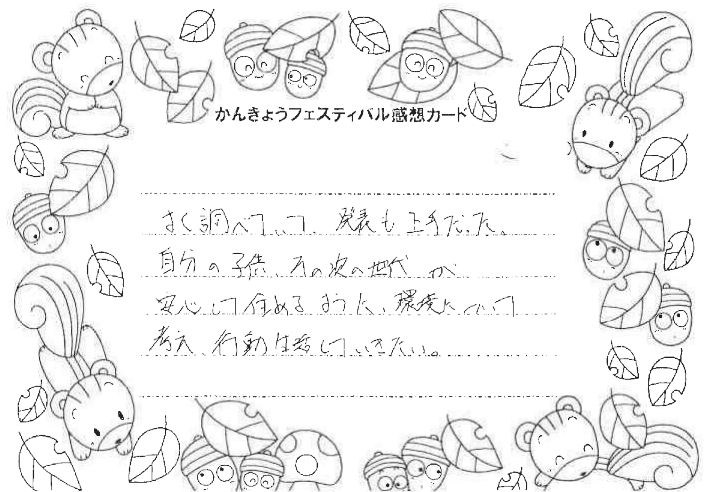 かんきょうフェスティバル感想カード
よく調べていて、発表も上手だった。
自分の子供、その次の世代が
安心して住めるように、環境について
考え、行動は していきたい。